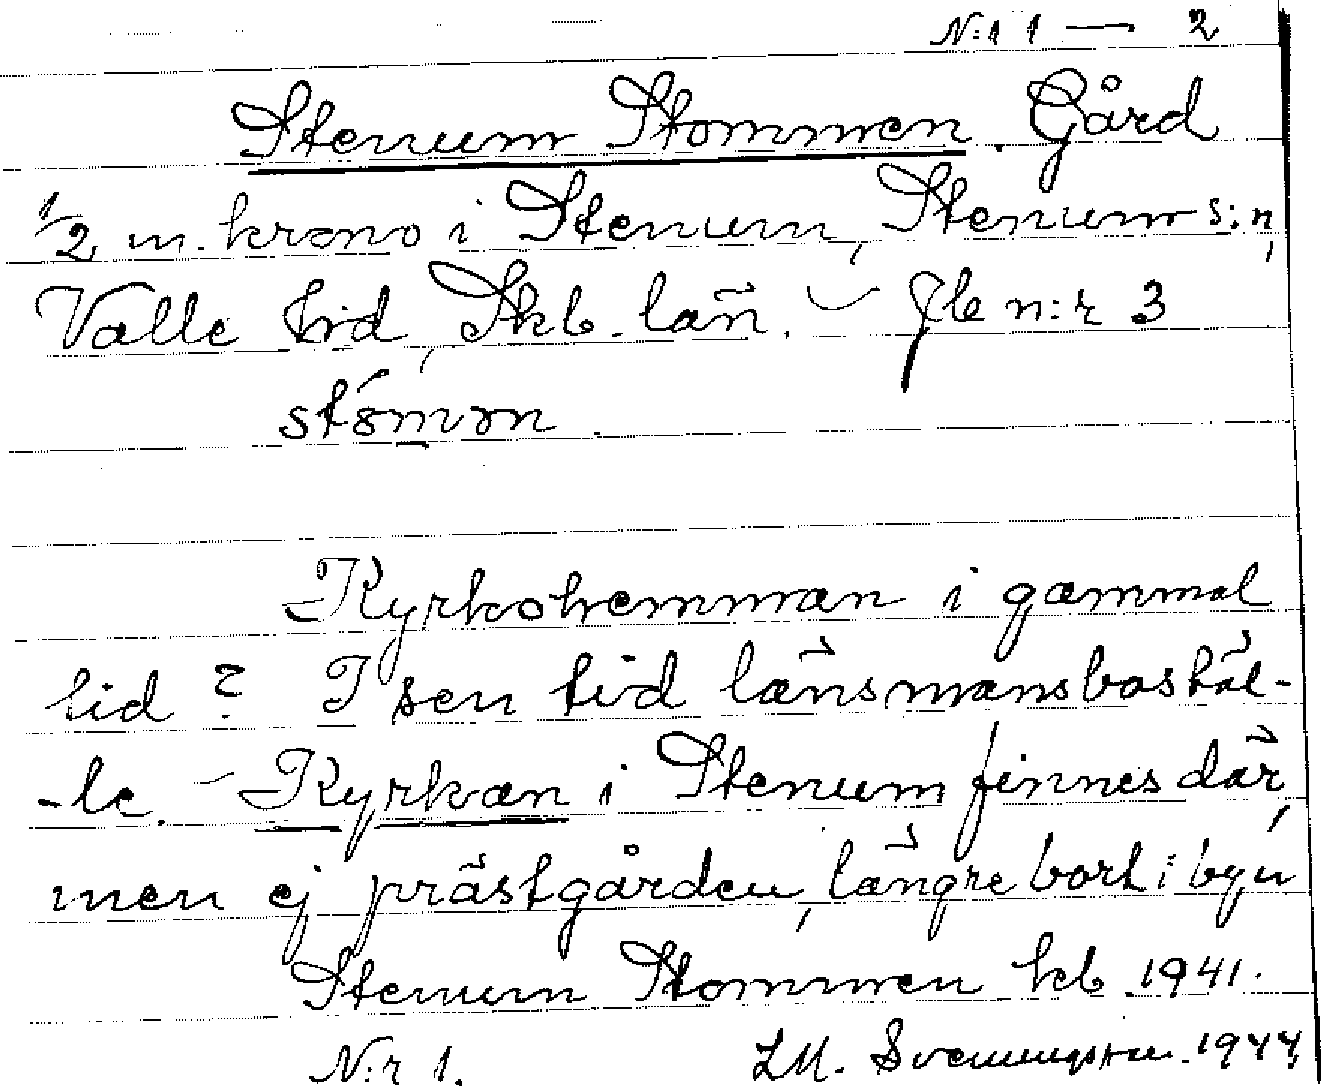 N:r 1 — 2
Stenum Stommen. Gård
1/2 m. krono i Stenum, Stenum s:n,
Valle hd, Skb. län. — Jb n:r 3
stómən
Kyrkohemman i gammal
tid? I sen tid länsmansbostäl-
-le. — Kyrkan i Stenum finnes där,
men ej prästgården, längre bort i byn
Stenum Stommen kb 1941.
N:r 1. LM. Svenungsson. 1944